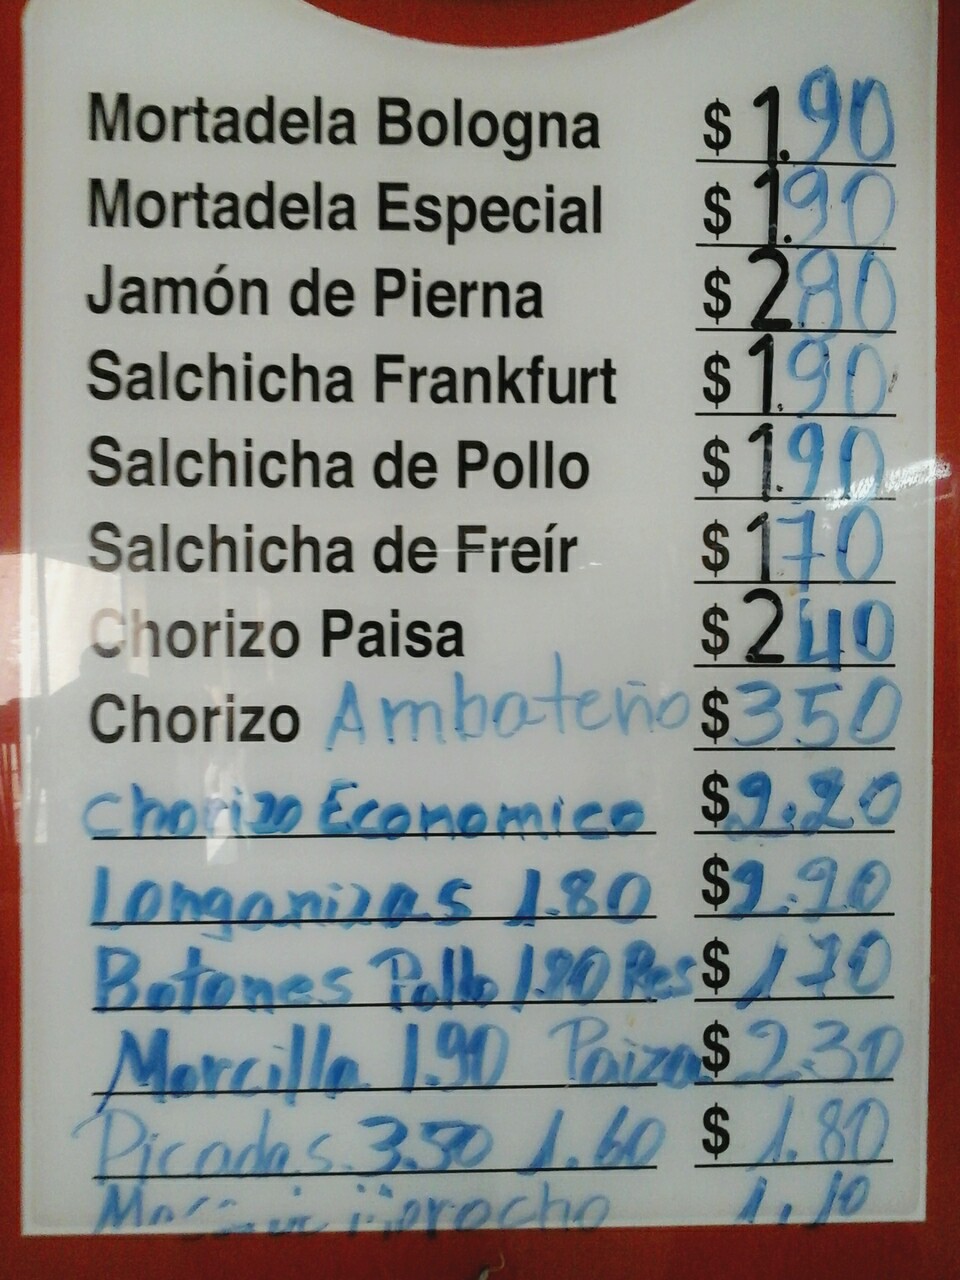 Mortadela Bologna $ 1.90
Mortadela Especial $ 1.90
Jamón de Pierna $ 2 80
Salchicha Frankfurt $ 1.90
Salchicha de Pollo $ 1.90
Salchicha de Freír $ 170
Chorizo Paisa $ 2 40
Chorizo Ambateño $ 350
Chorizo Economico $ 2.20
Longanizas 1.80 $ 2.20
Botones Pollo 1.80 Res $ 170
Morcilla 1.90 Paiza $ 2.30
Picadas 3.50 1.60 $ 1.80
1.10